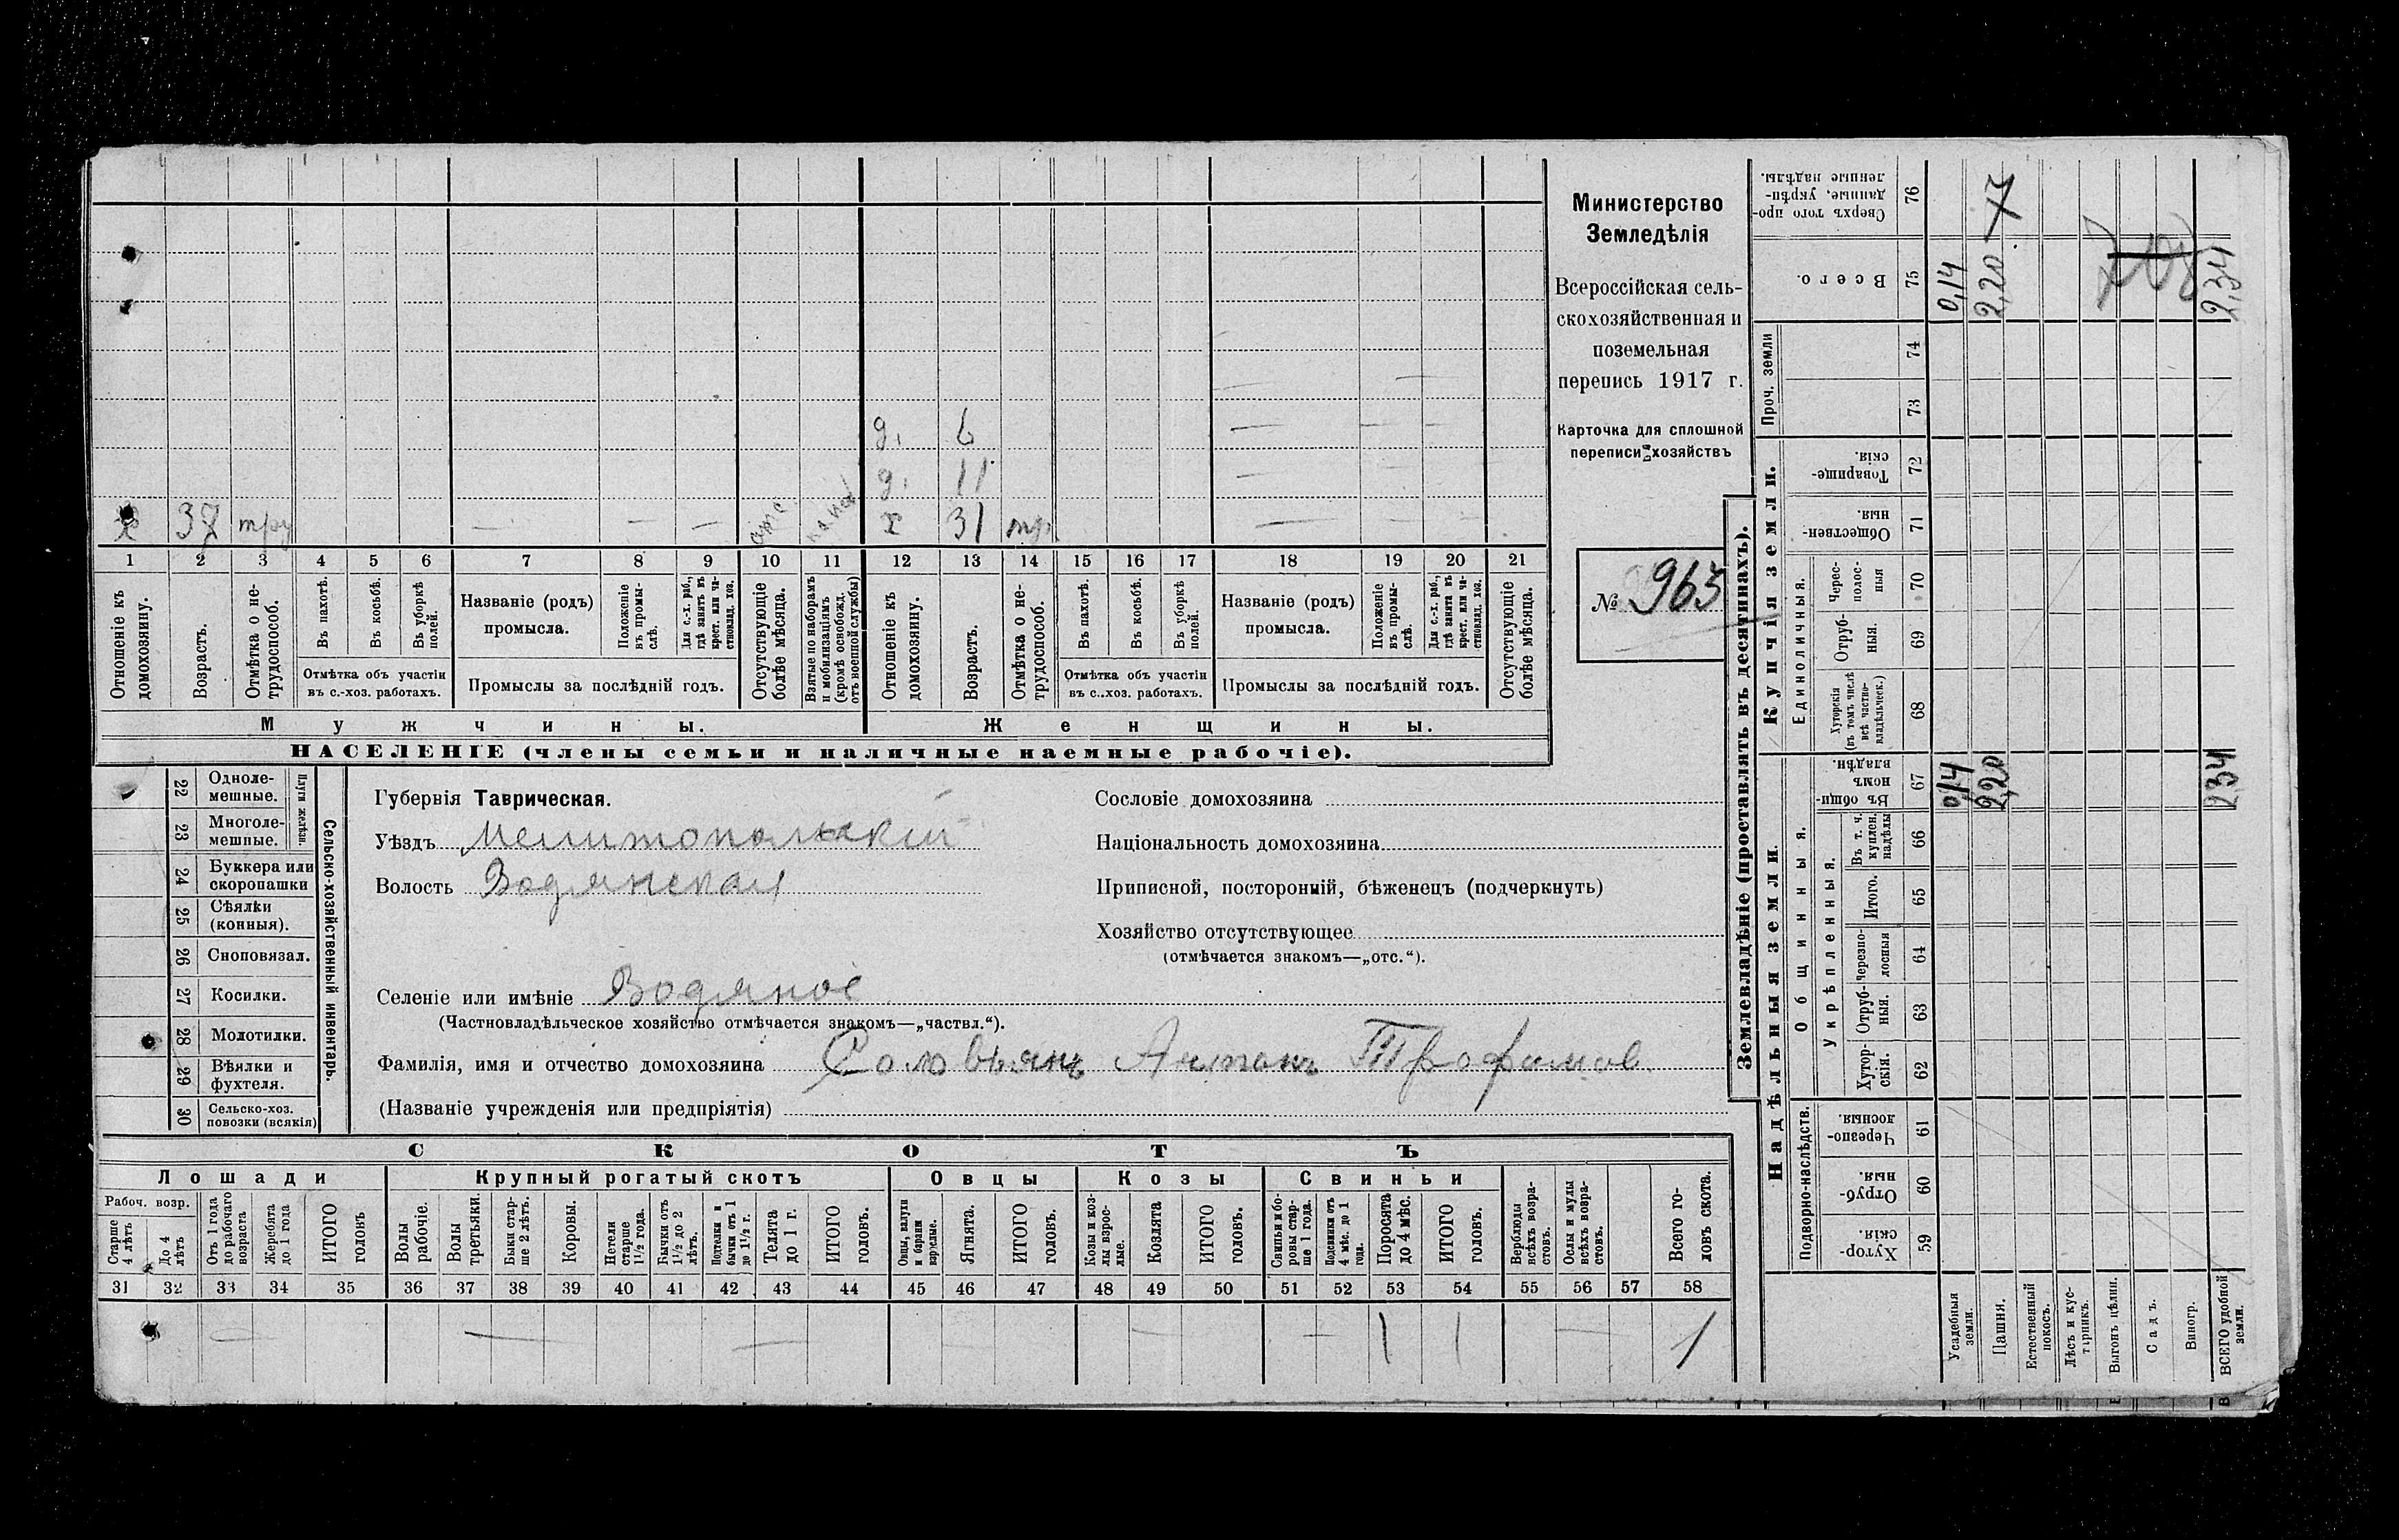 Министерство
Земледѣлія
Всероссійская сель-
скохозяйственная и
поземельная
перепись 1917 г.
Карточка для сплошной
переписи хозяйствъ
№ 963
д. 6
д. 11
х 37 тру
отс.
х 31 тр
1 2 3 4 5 6 7 8 9 10 11 12 13 14 15 16 17 18 19 20 21
Отношеніе къ домохозяину.
Возрастъ.
Отмѣтка о не-трудоспособ.
Въ пахотѣ.
Въ косьбѣ.
Въ уборкѣ полей.
Отмѣтка объ участіи
въ с.-хоз. работахъ.
Названіе (родъ)
промысла.
Положеніе въ промы-слѣ.
Для с.-х. раб., гдѣ занятъ въ крест. или ча-стновлад. хоз.
Промыслы за послѣдній годъ.
Отсутствующіе болѣе мѣсяца.
Взятые по наборамъ и мобилизаціямъ (кромѣ освобожд. отъ военной службы)
Отношеніе къ домохозяину.
Возрастъ.
Отмѣтка о не-трудоспособ.
Въ пахотѣ.
Въ косьбѣ.
Въ уборкѣ полей.
Отмѣтка объ участіи
въ с.-хоз. работахъ.
Названіе (родъ)
промысла.
Положеніе въ промы-слѣ.
Для с.-х. раб., гдѣ занята въ крест. или ча-стновлад. хоз.
Промыслы за послѣдній годъ.
Отсутствующіе болѣе мѣсяца.
Мужчины.
Женщины.
НАСЕЛЕНІЕ (члены семьи и наличные наемные рабочіе).
Сельско-хозяйственный инвентарь.
Плуги желѣзн.
22 Одноле-мешные.
23 Многоле-мешные.
24 Буккера или скоропашки
25 Сѣялки (конныя).
26 Сноповязал.
27 Косилки.
28 Молотилки.
29 Вѣялки и фухтеля.
30 Сельско-хоз. повозки (всякія)
Губернія Таврическая.
Уѣздъ Мелитопольскій
Волость Водянская
Селеніе или имѣніе Водяное
(Частновладѣльческое хозяйство отмѣчается знакомъ—„частвл.“).
Фамилія, имя и отчество домохозяина Соловьянъ Антонъ Трофимов.
(Названіе учрежденія или предпріятія)
Сословіе домохозяина
Національность домохозяина
Приписной, посторонній, бѣженецъ (подчеркнуть)
Хозяйство отсутствующее
(отмѣчается знакомъ—„отс.“).
СКОТЪ
Лошади
Рабоч. возр.
Старше 4 лѣтъ
До 4 лѣтъ
Отъ 1 года до рабочаго возраста
Жеребята до 1 года
ИТОГО головъ
Крупный рогатый скотъ
Волы рабочіе.
Волы третьяки.
Быки стар-ше 2 лѣтъ.
Коровы.
Нетели старше 1½ года.
Бычки отъ 1½ до 2 лѣтъ.
Подтелки и бычки отъ 1 до 1½ г.
Телята до 1 г.
ИТОГО головъ.
Овцы
Овцы, валухи и бараны взрослые.
Ягнята.
ИТОГО головъ.
Козы
Козы и коз-лы взрос-лые.
Козлята
ИТОГО головъ.
Свиньи
Свиньи и бо-ровы стар-ше 1 года.
Подсвинки отъ 4 мѣс. до 1 года.
Поросята до 4 мѣс.
ИТОГО головъ.
Верблюды всѣхъ возра-стовъ.
Ослы и мулы всѣхъ возра-стовъ.
Всего го-ловъ скота.
31 32 33 34 35 36 37 38 39 40 41 42 43 44 45 46 47 48 49 50 51 52 53 54 55 56 57 58
1 1 1
Землевладѣніе (проставлять въ десятинахъ).
Надѣльныя земли.
Купчія земли.
Проч. земли
Сверхъ того про-данные, укрѣп-ленные надѣлы. 76
Всего. 75
74
73
Товарище-скія. 72
Обществен-ныя. 71
Единоличныя.
Черес-полос-ныя 70
Отруб-ныя. 69
Хуторскія (въ томъ числѣ всѣ частно-владѣльческ.) 68
Общинныя.
Въ общин-номъ владѣн. 67
Укрѣпленныя.
Въ т. ч. куплен. надѣлы 66
Итого. 65
Черезпо-лосныя 64
Отруб-ныя. 63
Хутор-скія. 62
Подворно-наслѣдств.
Черезпо-лосныя. 61
Отруб-ныя. 60
Хутор-скія. 59
Усадебныя земли. 0,14 0,14
Пашня. 2,20 2,20
Естественный покосъ.
Лѣсъ и кус-тарникъ.
Выгонъ цѣлин.
Садъ.
Виногр.
ВСЕГО удобной земли. 2,34 2,34